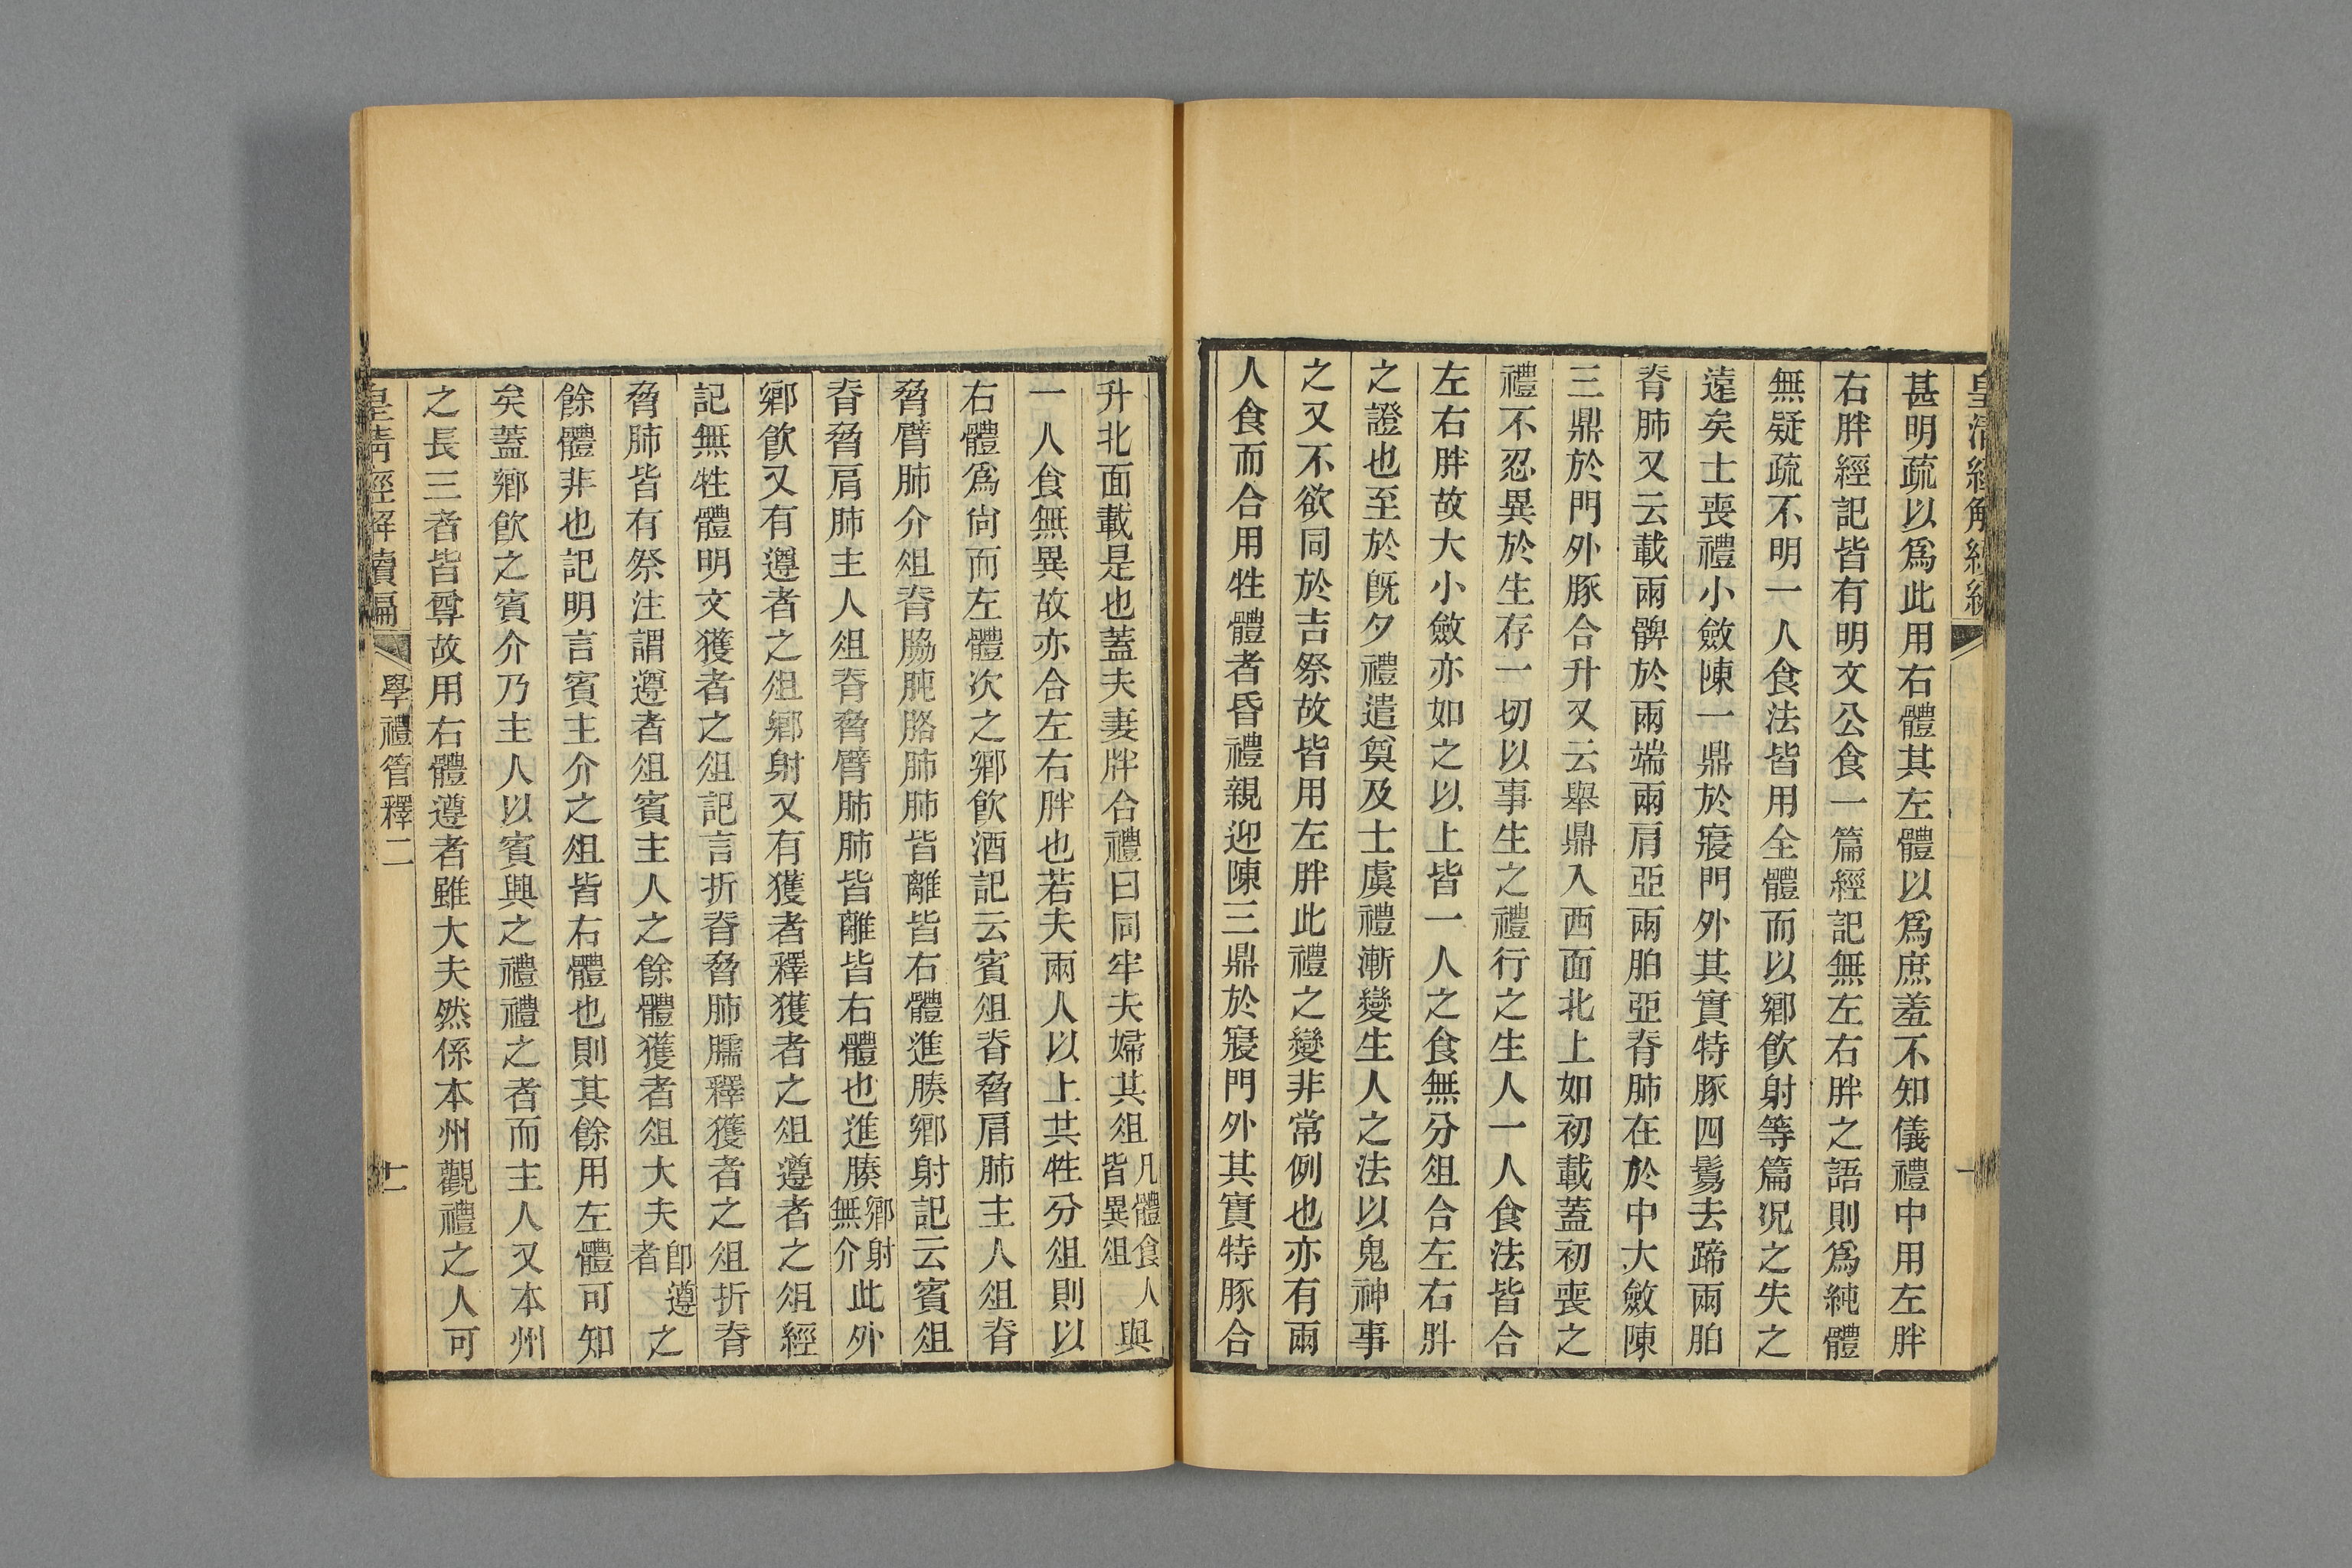 皇清經解續編
甚明疏以爲此用右體其左體以爲庶羞不知儀禮中用左胖
右胖經記皆有明文公食一篇經記無左右胖之語則爲純體
無疑疏不明一人食法皆用全體而以鄉飮射等篇況之失之
遠矣士喪禮小斂陳一鼎於寢門外其實特豚四鬄去蹄兩胉
脊肺又云載兩髀於兩端兩肩亞兩胉亞脊肺在於中大斂陳
三鼎於門外豚合升又云舉鼎入西面北上如初載蓋初喪之
禮不忍異於生存一切以事生之禮行之生人一人食法皆合
左右胖故大小斂亦如之以上皆一人之食無分俎合左右胖
之證也至於旣夕禮遣奠及士虞禮漸變生人之法以鬼神事
之又不欲同於吉祭故皆用左胖此禮之變非常例也亦有兩
人食而合用牲體者昏禮親迎陳三鼎於寢門外其實特豚合
升北面載是也蓋夫妻牉合禮曰同牢夫婦其俎凡體食人與皆異俎
一人食無異故亦合左右胖也若夫兩人以上共牲分俎則以
右體爲尙而左體次之鄉飮酒記云賓俎脊脅肩肺主人俎脊
脅臂肺介俎脊脇肫胳肺肺皆離皆右體進腠鄉射記云賓俎
脊脅肩肺主人俎脊脅臂肺肺皆離皆右體也進腠鄉射無介此外
鄉飮又有遵者之俎鄉射又有獲者釋獲者之俎遵者之俎經
記無牲體明文獲者之俎記言折脊脅肺臑釋獲者之俎折脊
脅肺皆有祭注謂遵者俎賓主人之餘體獲者俎大夫卽遵者之
餘體非也記明言賓主介之俎皆右體也則其餘用左體可知
矣蓋鄉飮之賓介乃主人以賓興之禮禮之者而主人又本州
之長三者皆尊故用右體遵者雖大夫然係本州觀禮之人可
皇淸經解續編 學禮管釋二 十一